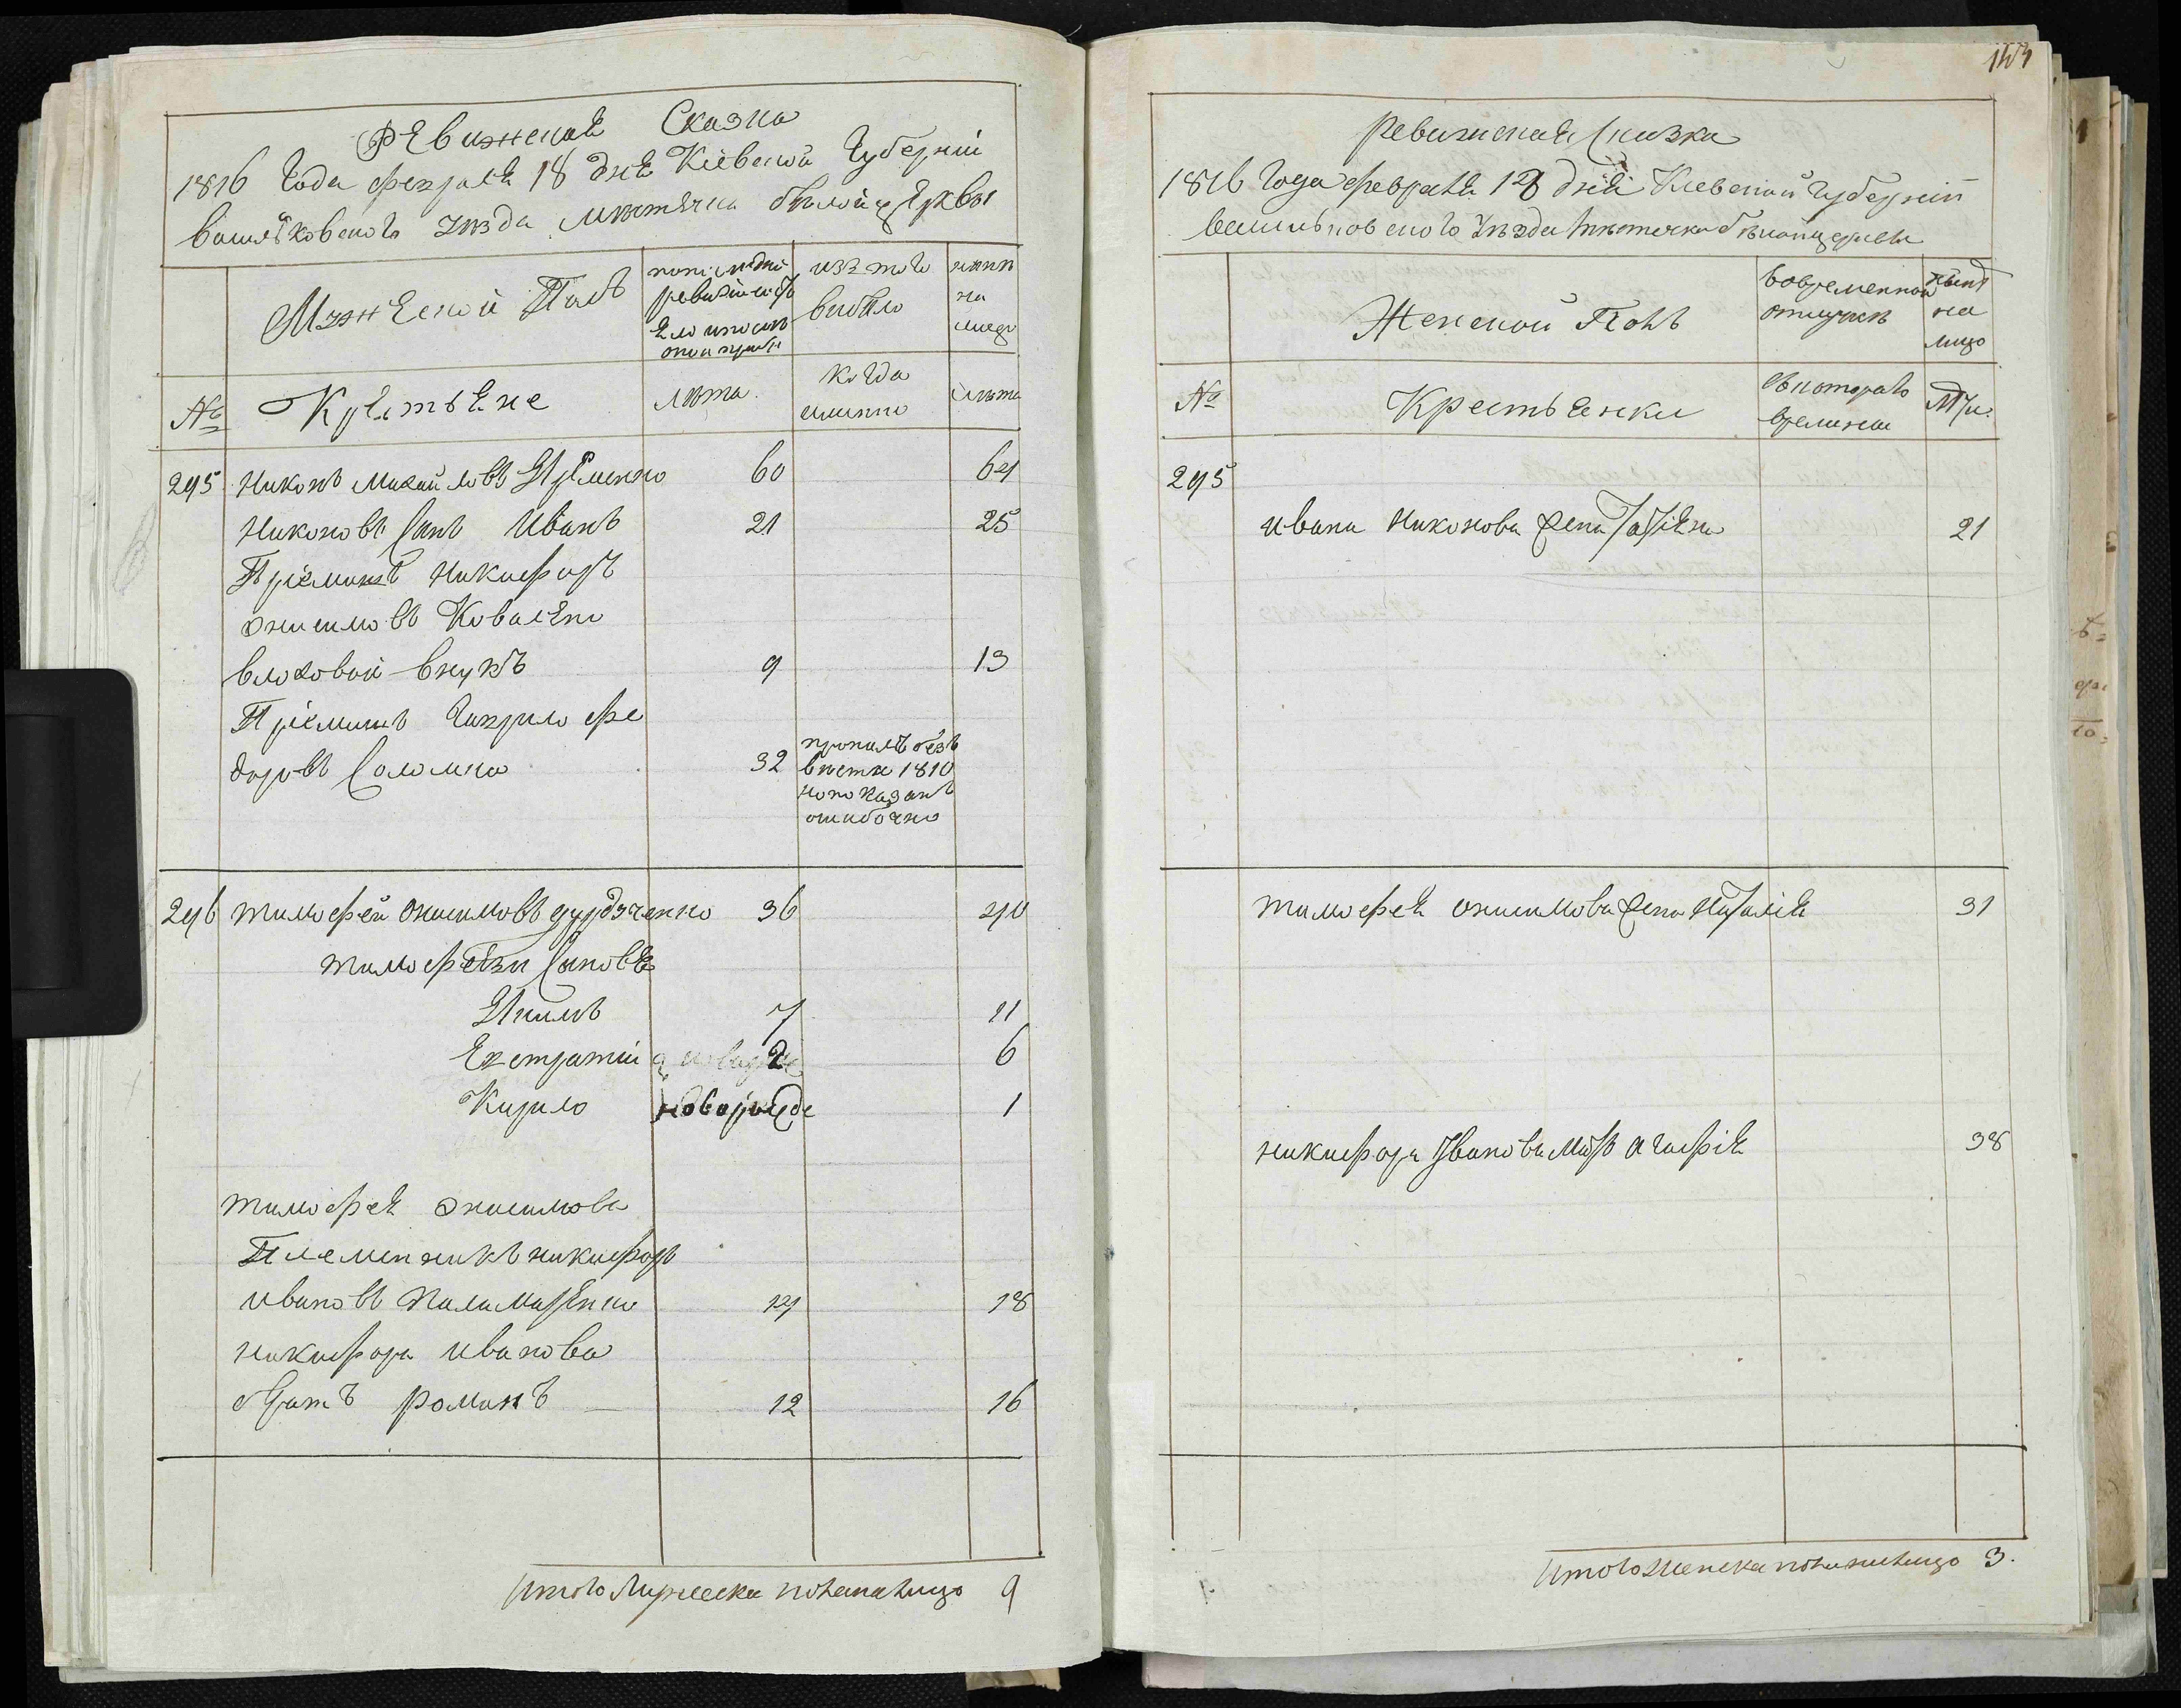 Ревижская Сказка
1816 Года февраля 18 дня Киевской Губернии
васильковского уезда местечка белой церквы
Мужеской Полъ
по последней
ревизии состо
яло и после
оной прибы
изъ того
выбыло
ныне
на
лицо
№ Крестьяне
лета
когда
именно
лета
245 Никонъ Михайловъ Яременко 60 64
Никоновъ Сынъ Иванъ 21 25
Пріемышъ никифоръ
онисимовъ Коваленко
внуковой внукъ 9 13
Пріемышъ Гаврило фе
доровъ Соломка 32
пропалъ безъ
вести 1810
но показанъ
ошибочно
246 тимофей онисимовъ дурдученко 36 40
тимофеевы Сыновья
Якимъ 7 11
Евстратий 2 6
Кирило новорожде 1
тимофея онисимова
Племенникъ никифоръ
ивановъ Паламаренко 14 18
никифора иванова
братъ романъ 12 16
Итого Мужеска пола налицо 9
144
Ревижская Сказка
1816 Года февраля 18 дня Киевской Губернии
васильковского Уезда местечка белой церквы
Женской Полъ
во временной
отлучке
ныне
на
лицо
№ Крестьянки
съ котораго
времени
лета
245
ивана Никонова жена Татіяна 21
тимофея онисимова жена Наталія 31
никифора Иванова мать агафія 38
Итого Женска пола налицо 3.